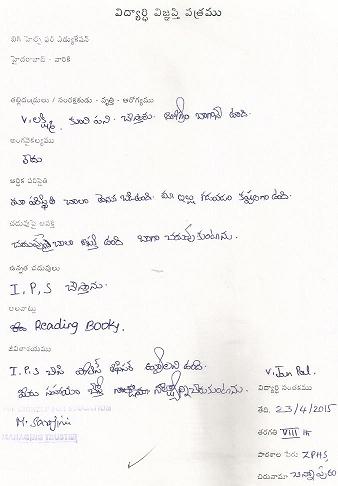 విద్యార్థి విజ్ఞప్తి పత్రము
బిగ్ హెల్ప్ ఫర్ ఎడ్యుకేషన్
హైదరాబాద్ - వారికి
తల్లిదండ్రులు / సంరక్షకుడు - వృత్తి - ఆరోగ్యము
V. లక్ష్మి, కూలి పని చేస్తారు. ఆరోగ్యం బాగానే ఉంది.
అంగవైకల్యము
లేదు
ఆర్థిక పరిస్థితి
మా పరిస్థితి చాలా వెనుక బడి ఉంది. మా ఇల్లు గడవడం కష్టంగా ఉంది.
చదువుపై ఆసక్తి
చదువుపై చాలా ఆసక్తి ఉంది బాగా చదువుకుంటాను.
ఉన్నత చదువులు
I.P.S చేస్తాను.
అలవాట్లు
Reading Books.
జీవితాశయము
I.P.S చేసి పోలీస్ ఆఫీసర్ అవ్వాలని ఉంది.
మీరు సహాయం చేస్తే
M. Sarojini
V. Jan Pal.
విద్యార్థి సంతకము
తేది. 23/4/2015
తరగతి VIII th
పాఠశాల పేరు ZPHS
చిరునామా